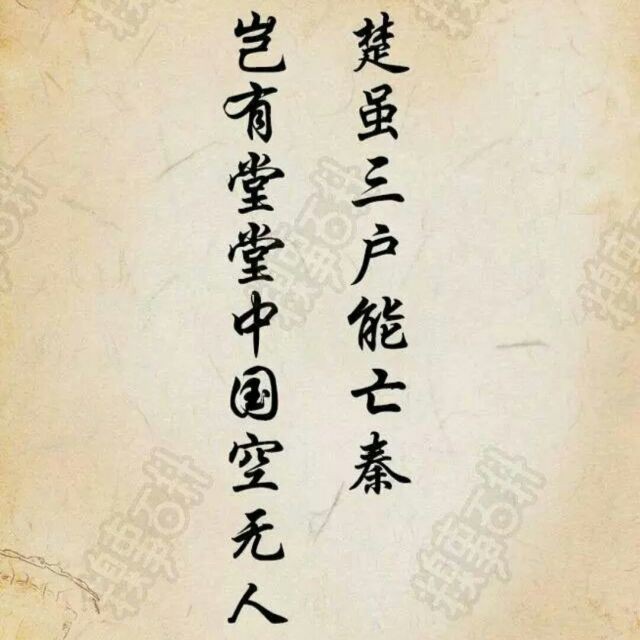 楚虽三户能亡秦
岂有堂堂中国空无人